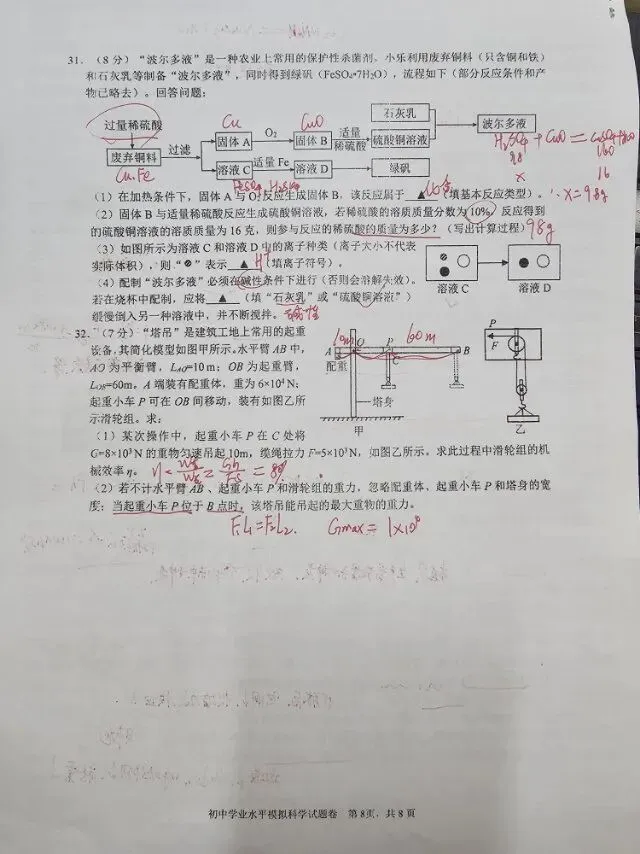 31.（8分）“波尔多液”是一种农业上常用的保护性杀菌剂。小乐利用废弃铜料（只含铜和铁）
和石灰乳等制备“波尔多液”，同时得到绿矾（FeSO₄·7H₂O），流程如下（部分反应条件和产
物已略去）。回答问题：
Cu CuO
过量稀硫酸 固体A O₂ 固体B 适量稀硫酸 石灰乳 硫酸铜溶液 波尔多液
废弃铜料 过滤 溶液C 适量Fe 溶液D 绿矾
Cu.Fe FeSO₄ H₂SO₄
H₂SO₄ + CuO = CuSO₄+H₂O
98 160
x 16
x=9.8g
（1）在加热条件下，固体A与O₂反应生成固体B，该反应属于 ▲ （填基本反应类型）。
化合
（2）固体B与适量稀硫酸反应生成硫酸铜溶液，若稀硫酸的溶质质量分数为10%，反应得到
的硫酸铜溶液的溶质质量为16克，则参与反应的稀硫酸的质量为多少？（写出计算过程）98g
（3）如图所示为溶液C和溶液D中的离子种类（离子大小不代表
实际体积），则“ ”表示 ▲ （填离子符号）。
H⁺
溶液C 溶液D
（4）配制“波尔多液”必须在碱性条件下进行（否则会溶解失效）。
若在烧杯中配制，应将 ▲ （填“石灰乳”或“硫酸铜溶液”）
缓慢倒入另一种溶液中，并不断搅拌。 碱性
32.（7分）“塔吊”是建筑工地上常用的起重
设备，其简化模型如图甲所示。水平臂AB中，
AO为平衡臂，L_AO=10m；OB为起重臂，
L_OB=60m。A端装有配重体，重为6×10⁴N；
起重小车P可在OB间移动，装有如图乙所
示滑轮组。求：
10m 60m
A O P B
配重 C
塔身
甲
P
F
乙
（1）某次操作中，起重小车P在C处将
G=8×10³N的重物匀速吊起10m，缆绳拉力F=5×10³N，如图乙所示，求此过程中滑轮组的机
械效率η。
（2）若不计水平臂AB、起重小车P和滑轮组的重力，忽略配重体、起重小车P和塔身的宽
度；当起重小车P位于B点时，该塔吊能吊起的最大重物的重力。
F₁L₁=F₂L₂
初中学业水平模拟科学试题卷 第8页，共8页